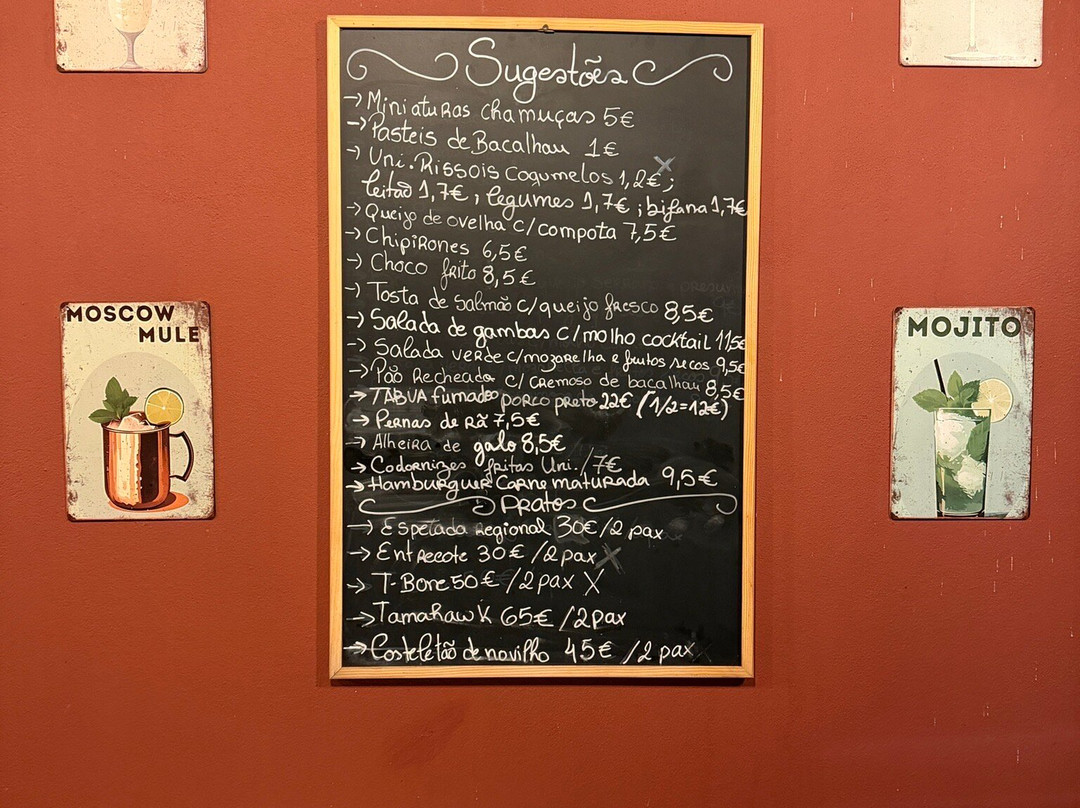 Sugestões
→ Miniaturas chamuças 5€
→ Pasteis de Bacalhau 1€
→ Uni. Rissois Cogumelos 1,2€ X ;
leitão 1,7€ ; legumes 1,7€ ; bifana 1,7€
→ Queijo de ovelha c/compota 7,5€
→ Chipirones 6,5€
→ Choco frito 8,5€
→ Tosta de Salmão c/queijo fresco 8,5€
→ Salada de gambas c/molho cocktail 11,5€
→ Salada verde c/mozarelha e frutos secos 9,5€
→ Pão Recheado c/ cremoso de bacalhau 8,5€
→ TÁBUA fumado porco preto 22€ (1/2=12€)
→ Pernas de Rã 7,5€
→ Alheira de galo 8,5€
→ Codornizes fritas Uni./7€
→ Hamburguer Carne maturada 9,5€
Pratos
→ Espetada Regional 30€/2 pax
→ Entrecote 30€/2 pax X
→ T-Bone 50€/2 pax X
→ Tamahawk 65€/2 pax
→ Costeletão de novilho 45€/2 pax
MOSCOW
MULE
MOJITO